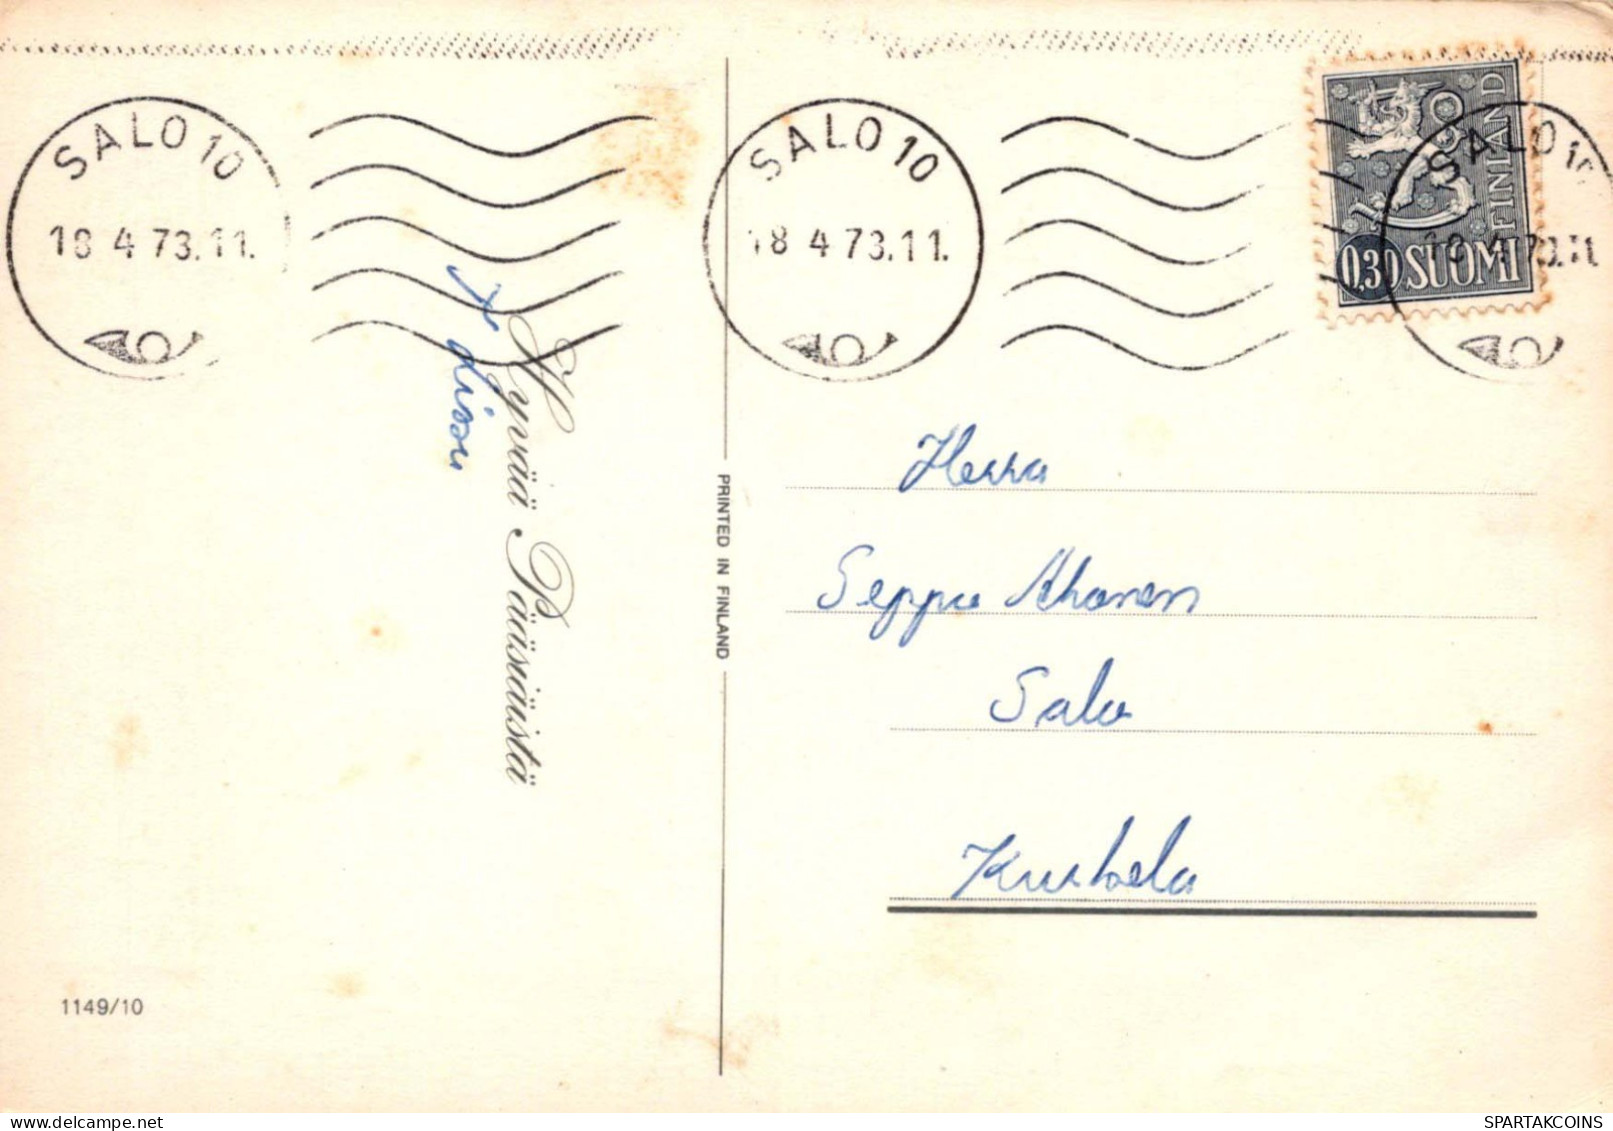 SALO 10
18 4 73.11.
SALO 10
18 4 73.11.
SALO 10
18 4 73.11
FINLAND
0,30 SUOMI
Hyvää Pääsiäistä
PRINTED IN FINLAND
Herra
Seppo Ahonen
Salo
1149/10
SPARTAKCOINS